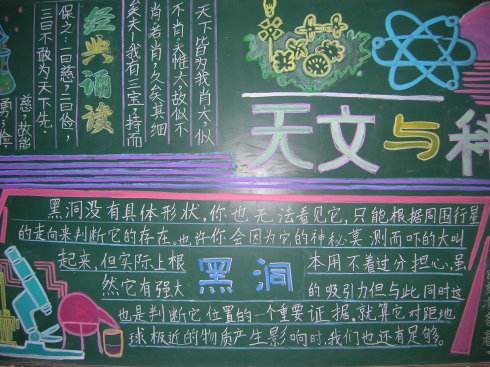 天下皆为我肖大,似
不肖.夫惟大,故似不
肖.若肖,久矣其细
矣夫!我有三宝,持而
经典诵读
保之:一曰慈,二曰俭,
三曰不敢为天下先.
慈,故能
勇;俭
天文与科
黑洞没有具体形状,你也无法看见它,只能根据周围行星
的走向来判断它的存在.也许你会因为它的神秘莫测而吓的大叫
起来,但实际上根本用不着过分担心,虽
黑洞
然它有强大的吸引力但与此同时这
也是判断它位置的一个重要证据,就算它对距地
球极近的物质产生影响时,我们也还有足够。